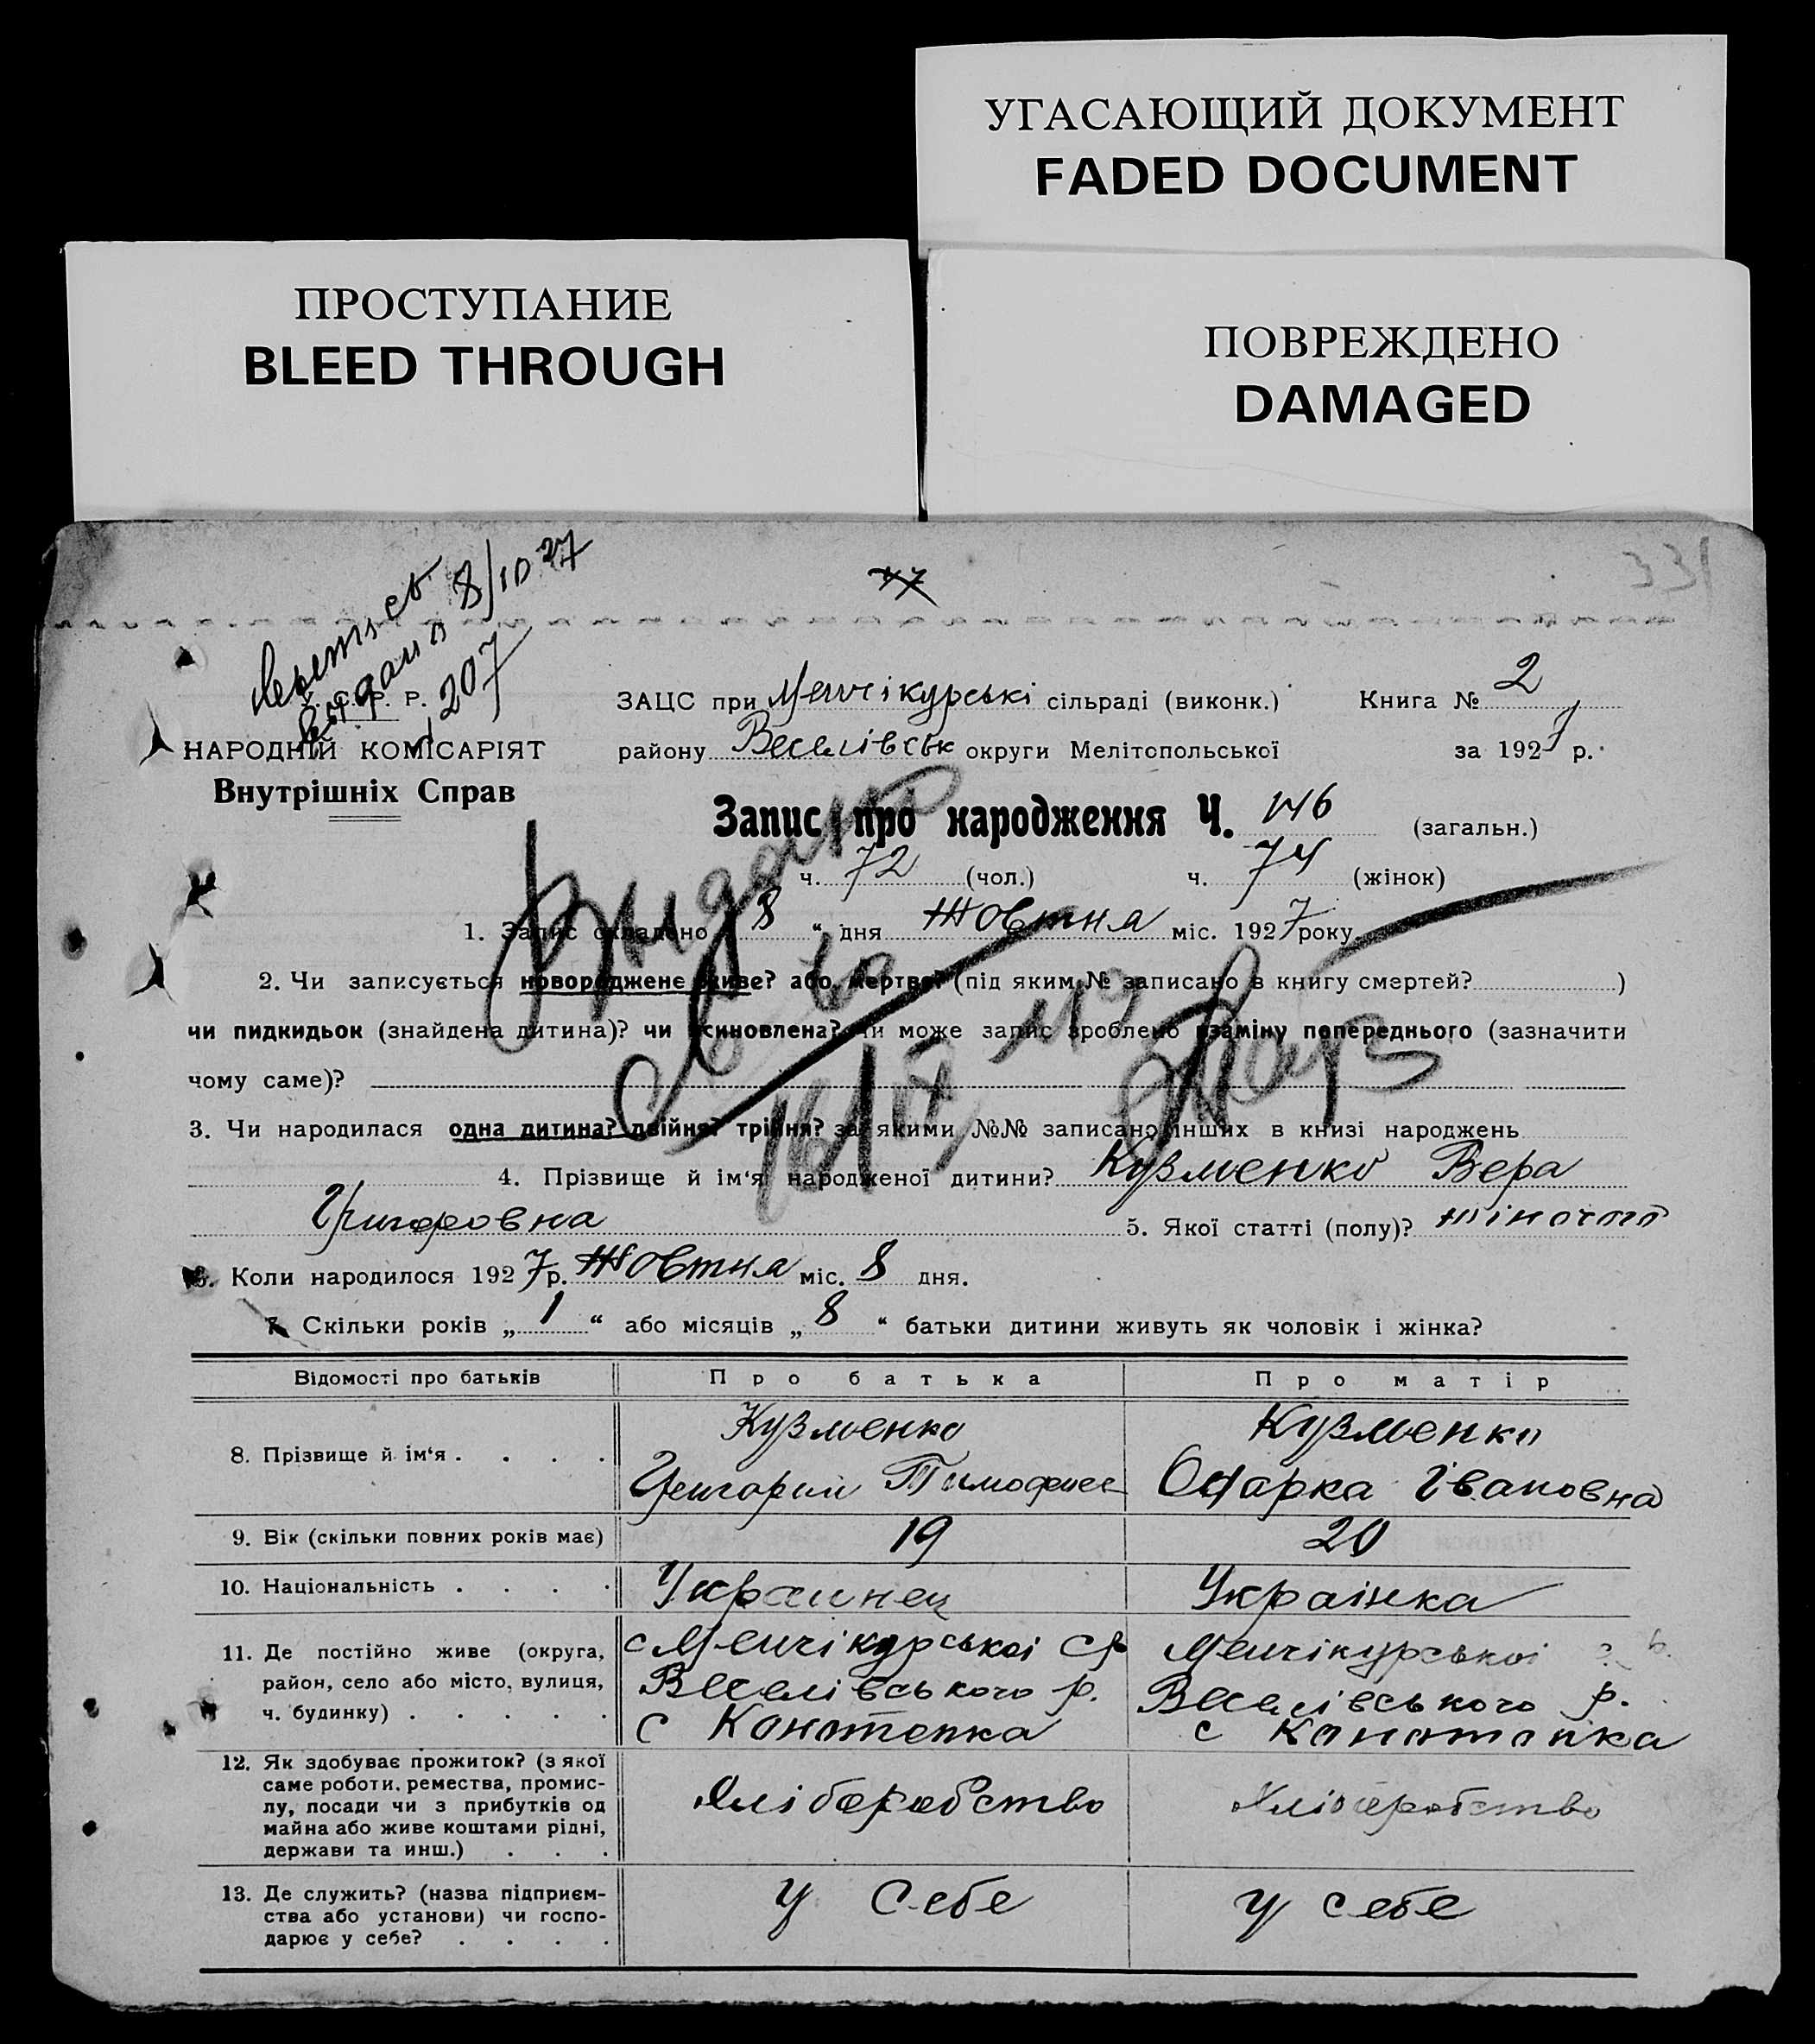 УГАСАЮЩИЙ ДОКУМЕНТ
FADED DOCUMENT
ПРОСТУПАНИЕ
BLEED THROUGH
ПОВРЕЖДЕНО
DAMAGED
331
47
8/10 27
207
С. Р. Р.
НАРОДНІЙ КОМІСАРІЯТ
Внутрішніх Справ
ЗАЦС при Менчікурські сільраді (виконк.) Книга № 2
району Веселівськ округи Мелітопольської за 1927 р.
Запис про народження Ч. 146 (загальн.)
ч. 72 (чол.) ч. 74 (жінок)
1. Запис складено 8 “ дня Жовтня міс. 1927 року.
2. Чи записується новороджене живе? або мертве? (під яким № записано в книгу смертей? )
чи пидкидьок (знайдена дитина)? чи усиновлена? чи може запис зроблено взаміну попереднього (зазначити
чому саме)?
3. Чи народилася одна дитина? двійня? трійня? за якими №№ записано інших в книзі народжень
4. Прізвище й ім‘я народженої дитини? Кузменко Вера
Григоровна 5. Якої статті (полу)? жіночого
6. Коли народилося 1927 р. Жовтня міс. 8 дня.
7. Скільки років „ 1 “ або місяців „ 8 “ батьки дитини живуть як чоловік і жінка?
Видано
Відомості про батьків Про батька Про матір
8. Прізвище й ім‘я . . . . Кузменко Кузменко
Григорий Тимофиев Одарка Івановна
9. Вік (скільки повних років має) 19 20
10. Національність . . . . Украинец Українка
11. Де постійно живе (округа, район, село або місто, вулиця, ч. будинку) . . . . .
с Менчікурської ср Менчікурської
Веселівського р. Веселівського р.
с Конотопка с Конотопка
12. Як здобуває прожиток? (з якої
саме роботи, ремества, промис-
лу, посади чи з прибутків од
майна або живе коштами рідні,
держави та инш.) . . .
Хліборобство Хліборобство
13. Де служить? (назва підприєм-
ства або установи) чи госпо-
дарює у себе? . . . .
У Себе У себе